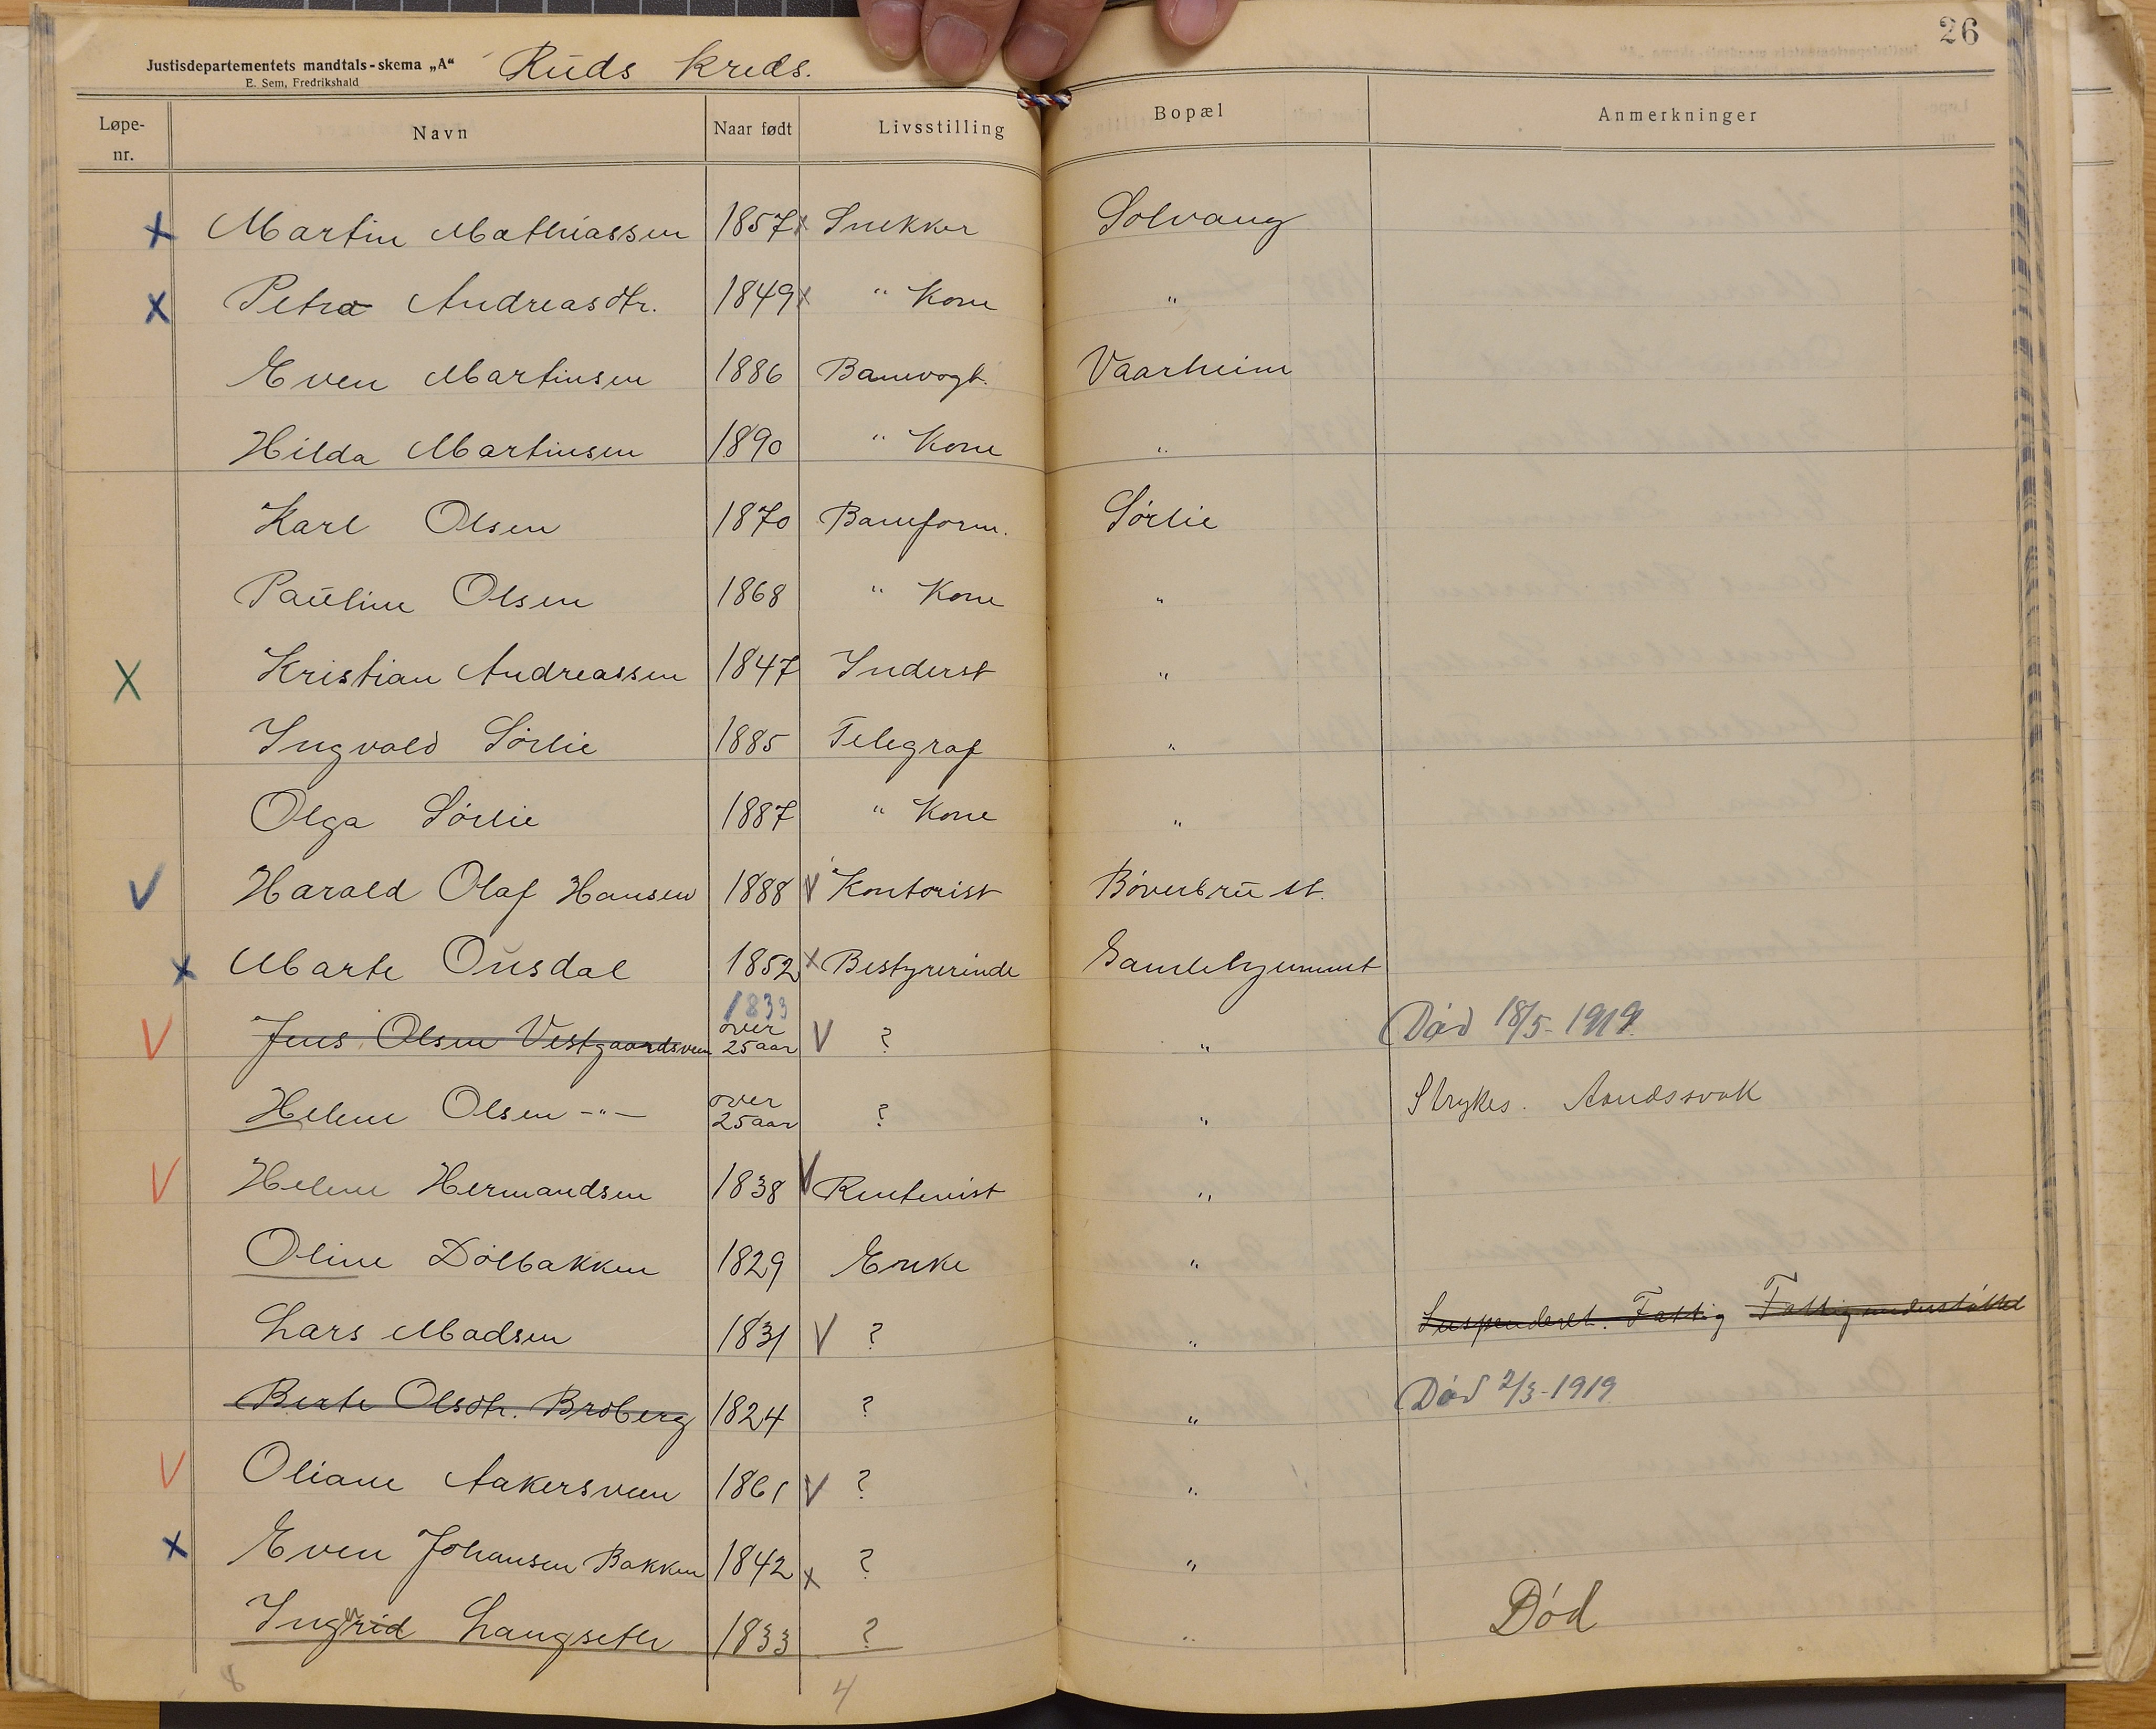 26
Justisdepartementets mandtals-skema „A“ Ruds kreds.
E. Sem, Fredrikshald
Løpe-nr. Navn Naar født Livsstilling Bopæl Anmerkninger
x Martin Mathiassen 1857 x Snekker Solvang
x Petra Andreasdtr. 1849 x " Kone "
Even Martinsen 1886 Banevogt. Vaarheim
Hilda Martinsen 1890 " Kone "
Karl Olsen 1870 Baneform. Sørlie
Pauline Olsen 1868 " Kone "
X Kristian Andreassen 1847 Inderst "
Ingvald Sørlie 1885 Telegraf "
Olga Sørlie 1887 " Kone "
V Harald Olaf Hansen 1888 V Kontorist Bøverbru st.
x Marte Ousdal 1852 x Bestyrerinde Gamlehjemmet
1833
V Jens Olsen Vestgaardsveen over 25 aar V ? " Død 18/5-1919.
Helene Olsen -"- over 25 aar ? " Strykes. Aandssvak
V Helene Hermandsen 1838 V Rentenist "
Oline Dølbakken 1829 Enke "
Lars Madsen 1831 V ? " Suspenderet. Fattig Fattigunderstøttet
Berte Olsdtr. Broberg 1824 ? " Død 2/3-1919
V Oliane Aakersveen 1861 V ? "
x Even Johansen Bakken 1842 x ? "
Ingrid Langseth 1833 ? " Død
8 4